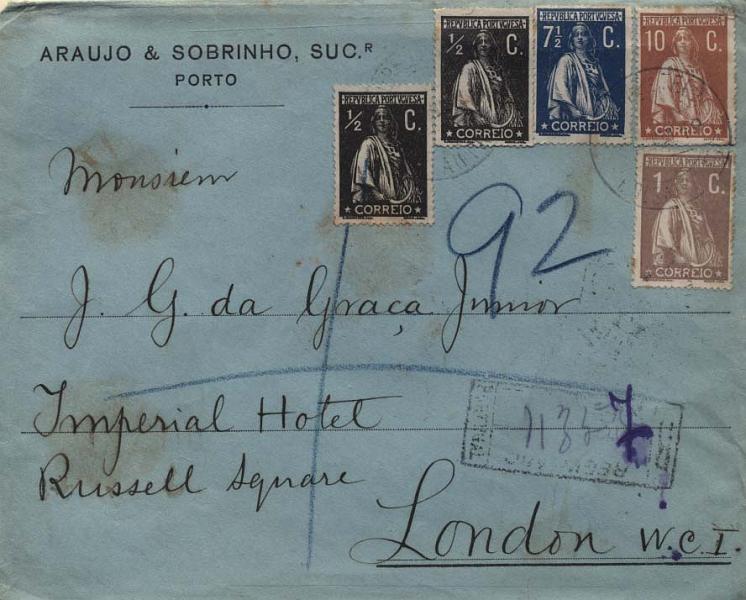 ARAUJO & SOBRINHO, SUC.R
PORTO
REPVBLICA PORTVGVESA
½ C.
CORREIO
REPVBLICA PORTVGVESA
½ C.
CORREIO
REPVBLICA PORTVGVESA
7½ C.
CORREIO
REPVBLICA PORTVGVESA
10 C.
CORREIO
REPVBLICA PORTVGVESA
1 C.
CORREIO
Monsieur
92
J. G. da Graça Junior
Imperial Hotel
Russell Square
London W.C.1.